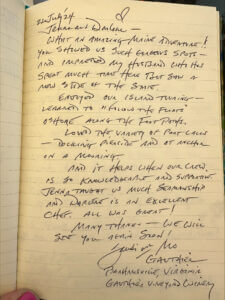 22 July '24
Jenna and Warlene —
What an amazing Maine adventure!
You showed us such glorious spots —
and impressed my husband who has
spent much time here but saw a
new side of the state.
Enjoyed our island touring —
learned to "follow the
ashore along the foot paths.
Loved the variety of port calls
— docking pierside and at anchor
on a mooring
And it helps when our crew
is so knowledgeable and supportive.
Jenna taught us much seamanship
and Warlene is an excellent
chef. All was great!
Many thanks — we will
see you again soon!
Mo
Gauthier
, Virginia
Gauthier Vineyard Winery